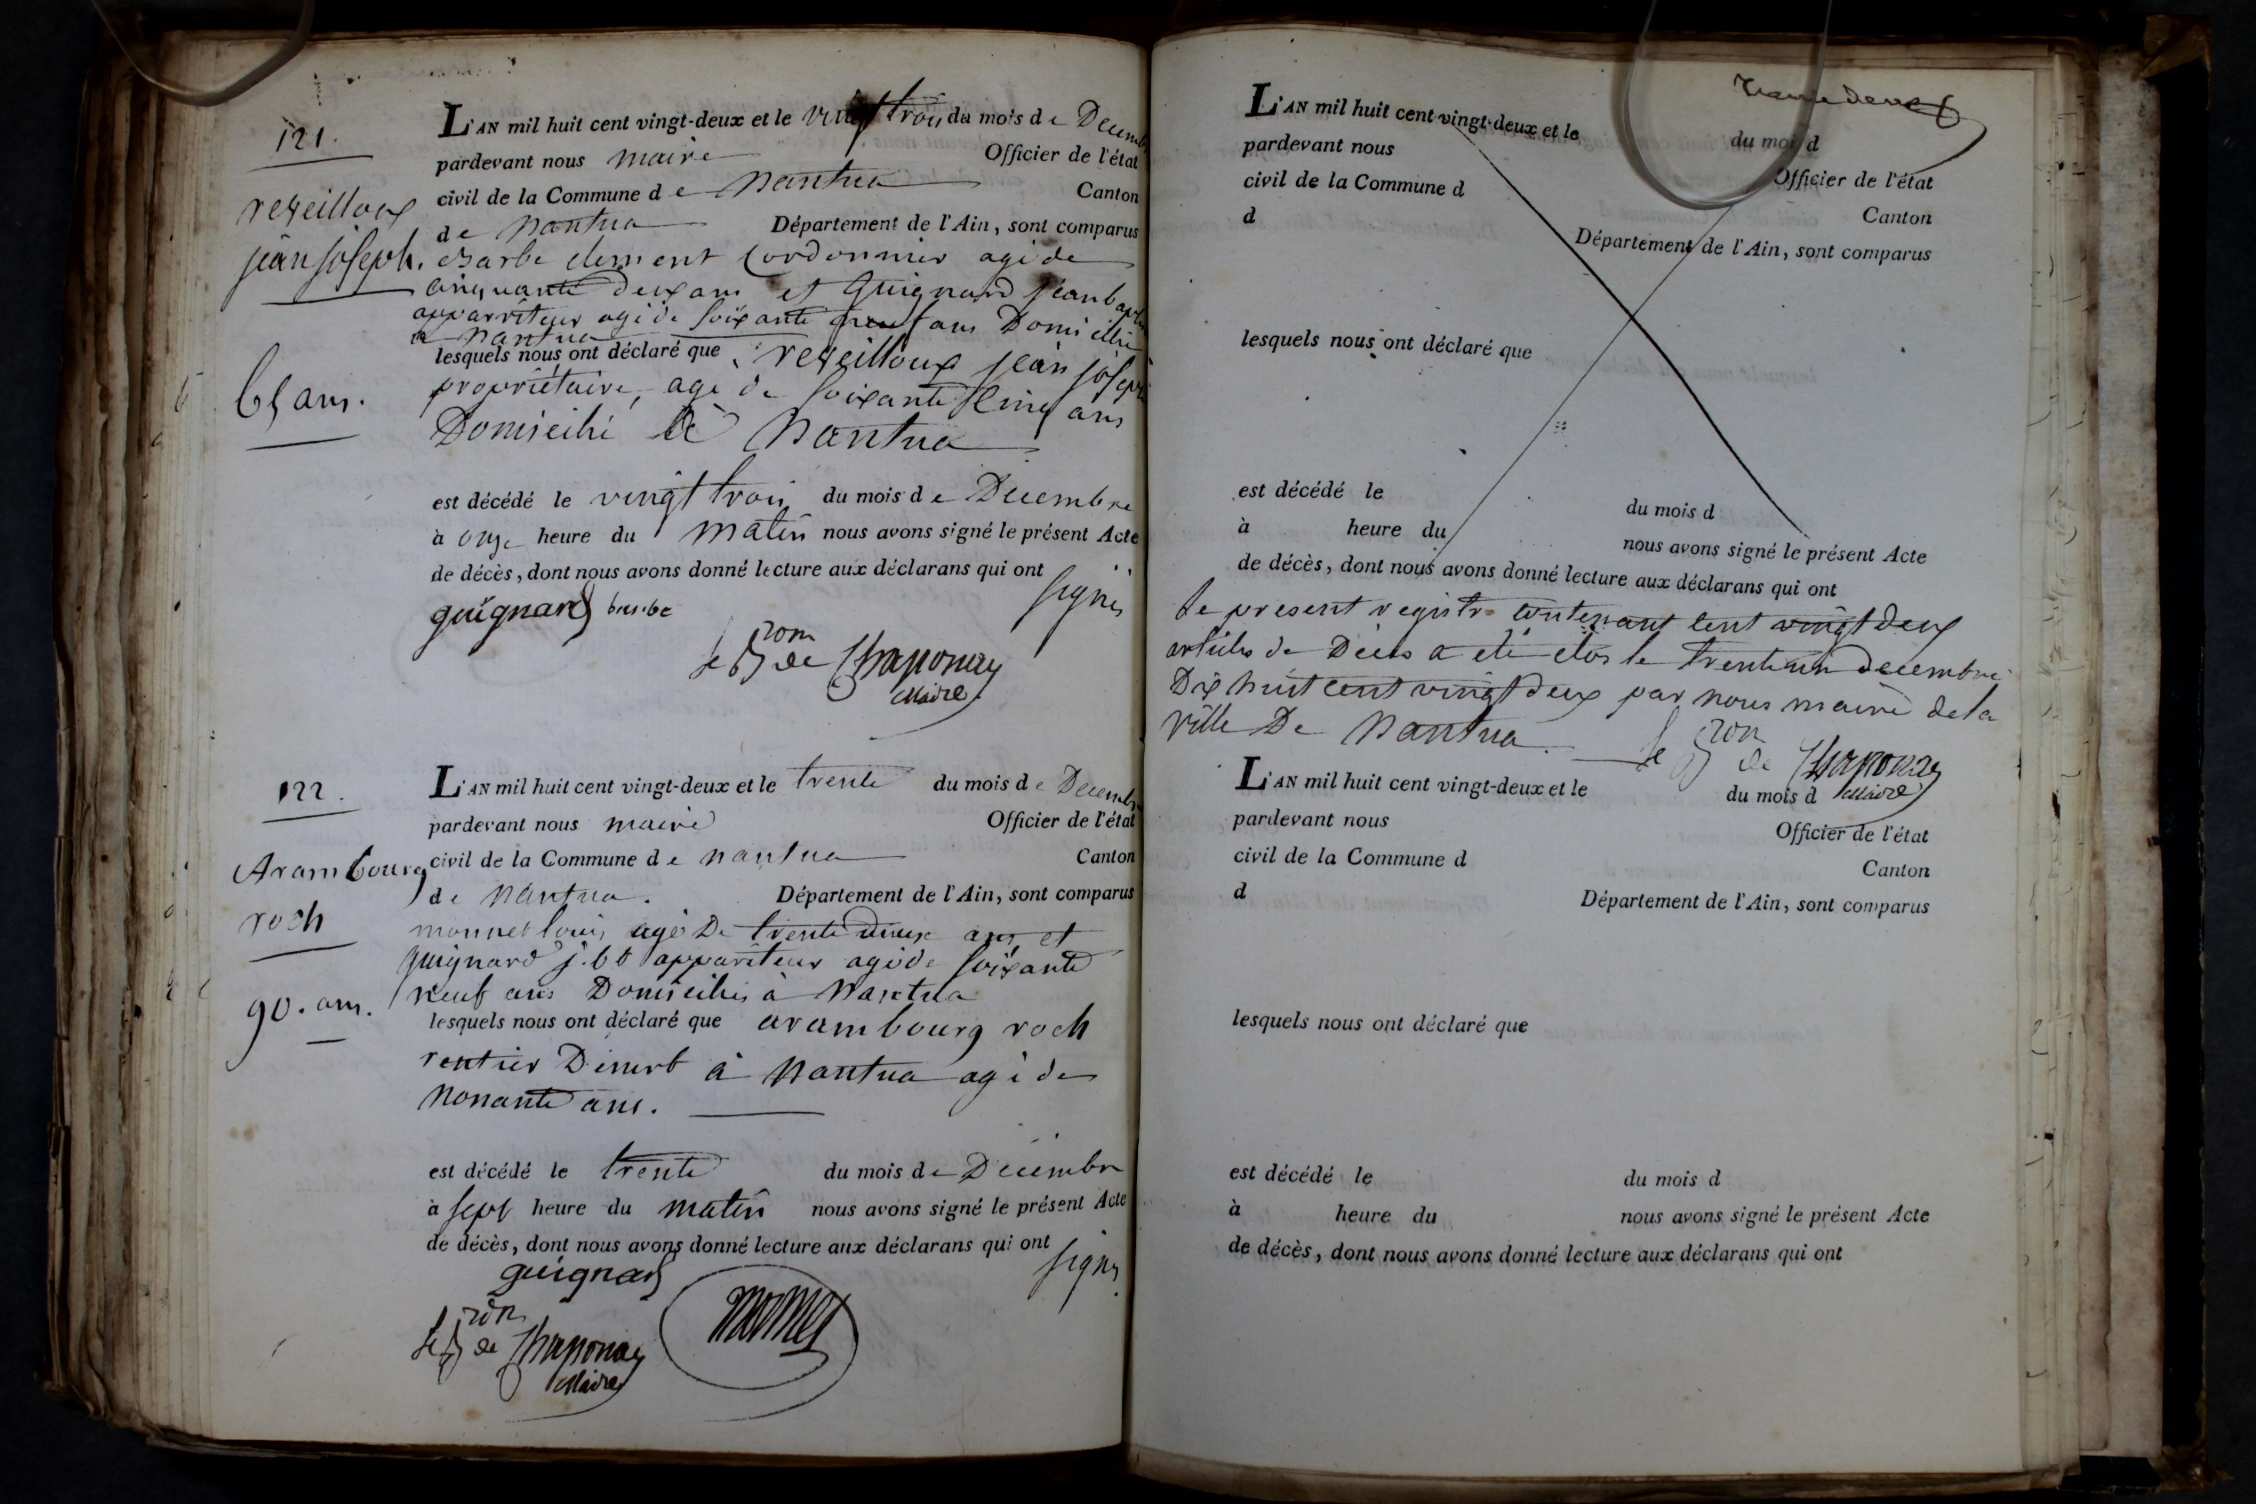 121.
L'AN mil huit cent vingt-deux et le vingt trois du mois de Decembre
pardevant nous maire Officier de l'état
civil de la Commune de nantua Canton
de nantua Département de l'Ain, sont comparus
rezeilloux
jean joseph.
clement Cordonnier agé de
cinquante deux ans et Guignard jean bapte
apparriteur agé de soixante neuf ans Domicilié
a nantua
lesquels nous ont déclaré que rezeilloux jean joseph
65 ans.
propriétaire, agé de soixante cinq ans
Domicilié à Nantua
est décédé le vingt trois du mois de Decembre
à onze heure du matin nous avons signé le présent Acte
de décès, dont nous avons donné lecture aux déclarans qui ont signés
guignard barbe
le Bron de Chaponay
Maire
122.
L'AN mil huit cent vingt-deux et le trente du mois de Decembre
pardevant nous maire Officier de l'état
civil de la Commune de nantua Canton
de nantua. Département de l'Ain, sont comparus
Arambourg
roch
monnet louis agé De trente deux ans et
guignard j. bt apparîteur agé de soixante
neuf ans Domicilies à Nantua
90. ans.
lesquels nous ont déclaré que arambourg roch
rentier Demeurt à Nantua agé de
Nonante ans.
est décédé le trente du mois de Decembre
à sept heure du matin nous avons signé le présent Acte
de décès, dont nous avons donné lecture aux déclarans qui ont signés
guignard
monnet
le Bron de Chaponay
Maire
L'AN mil huit cent vingt-deux et le du mois d
pardevant nous Officier de l'état
civil de la Commune d Canton
d Département de l'Ain, sont comparus
lesquels nous ont déclaré que
est décédé le du mois d
à heure du nous avons signé le présent Acte
de décès, dont nous avons donné lecture aux déclarans qui ont
Le present registre contenant cent vingt deux
articles de Décès a eté clos le trente un decembre
Dix huit cent vingt deux par nous maire de la
ville De Nantua
le Bron de Chaponay
Maire
L'AN mil huit cent vingt-deux et le du mois d
pardevant nous Officier de l'état
civil de la Commune d Canton
d Département de l'Ain, sont comparus
lesquels nous ont déclaré que
est décédé le du mois d
à heure du nous avons signé le présent Acte
de décès, dont nous avons donné lecture aux déclarans qui ont